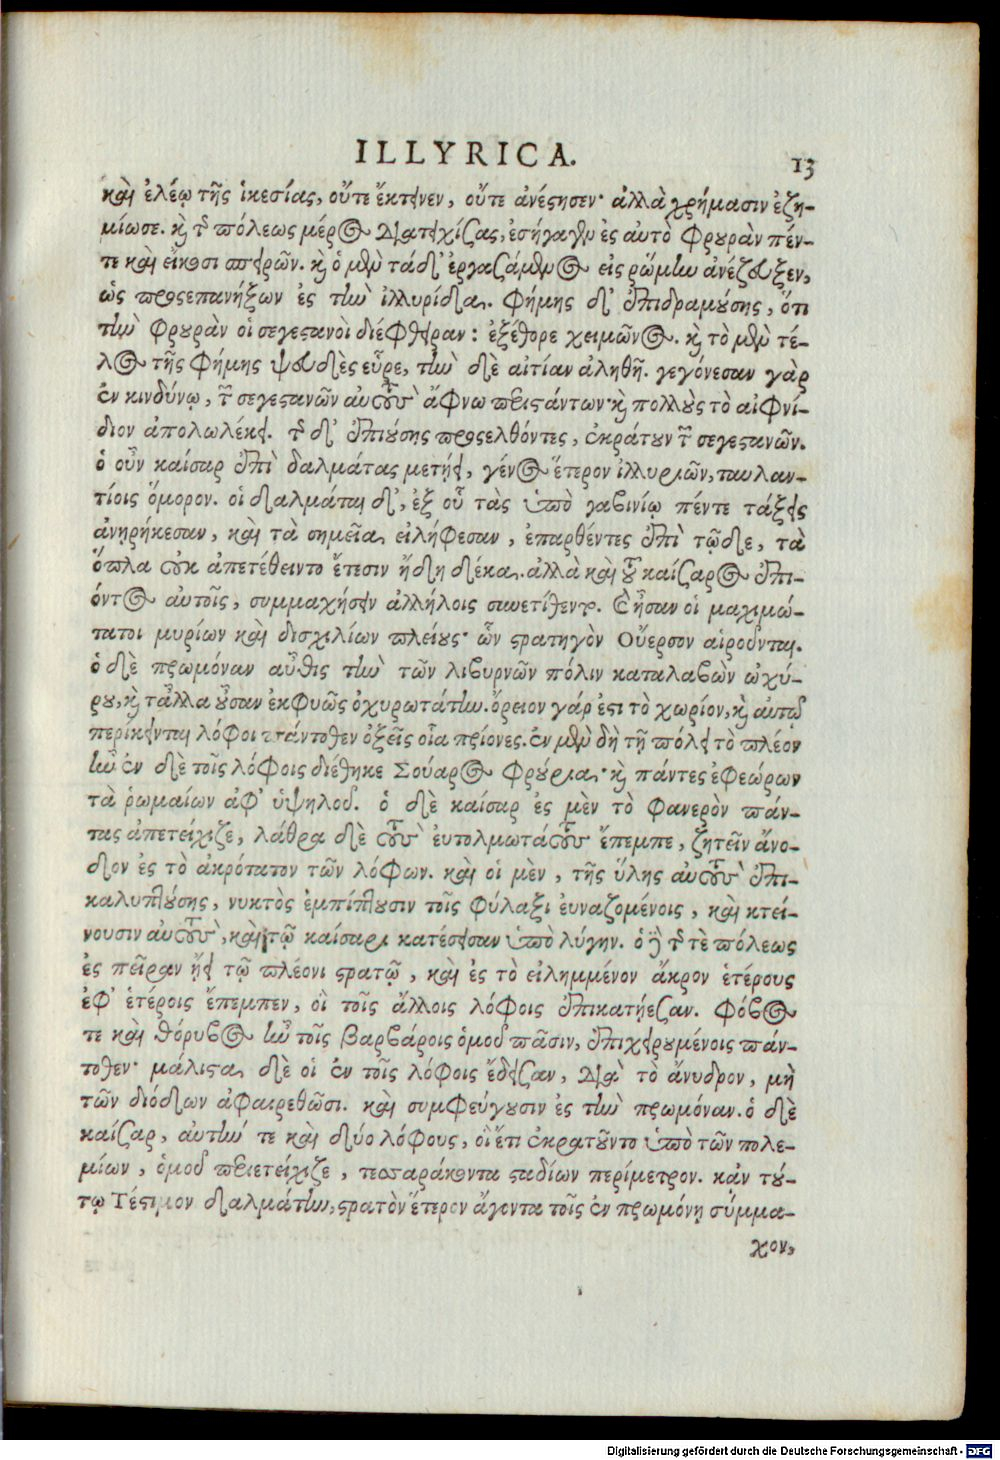 ILLYRICA.
13
καὶ ἐλέῳ τῆς ἱκεσίας, οὔτε ἔκτεινεν, οὔτε ἀνέστησεν· ἀλλὰ χρήμασιν ἐζη-
μίωσε. καὶ τῆς πόλεως μέρος διατειχίσας, ἐσήγαγεν ἐς αὐτὸ φρουρὰν πέν-
τε καὶ εἴκοσι σπειρῶν. καὶ ὁ μὲν τάδ' ἐργασάμενος εἰς ῥώμην ἀνέζευξεν,
ὡς προσεπανήξων ἐς τὴν ἰλλυρίδα. φήμης δ' ἐπιδραμούσης, ὅτι
τὴν φρουρὰν οἱ σεγεστανοὶ διέφθειραν: ἐξέθορε χειμῶνος. καὶ τὸ μὲν τέ-
λος τῆς φήμης ψευδὲς εὗρε, τὴν δὲ αἰτίαν ἀληθῆ. γεγόνεσαν γὰρ
ἐν κινδύνῳ, τῶν σεγεστανῶν αὐτοὺς ἄφνω περιστάντων· καὶ πολλοὺς τὸ αἰφνί-
διον ἀπολωλέκει. τῆς δ' ἐπιούσης προσελθόντες, ἐκράτουν τῶν σεγεστανῶν.
ὁ οὖν καίσαρ ἐπὶ δαλμάτας μετῄει, γένος ἕτερον ἰλλυριῶν, ταυλαν-
τίοις ὅμορον. οἱ δαλμάται δ', ἐξ οὗ τὰς ὑπὸ γαβινίῳ πέντε τάξεις
ἀνῃρήκεσαν, καὶ τὰ σημεῖα εἰλήφεσαν, ἐπαρθέντες ἐπὶ τῷδε, τὰ
ὅπλα οὐκ ἀπετέθειντο ἔτεσιν ἤδη δέκα. ἀλλὰ καὶ τοῦ καίσαρος ἐπι-
όντος αὐτοῖς, συμμαχήσειν ἀλλήλοις συνετίθεντο. καὶ ἦσαν οἱ μαχιμώ-
τατοι μυρίων καὶ δισχιλίων πλείους· ὧν στρατηγὸν Οὔερσον αἱροῦνται.
ὁ δὲ πρωμόναν αὖθις τὴν τῶν λιβυρνῶν πόλιν καταλαβὼν ὠχύ-
ρου, καὶ τἆλλα οὖσαν ἐκφυῶς ὀχυρωτάτην. ὄρειον γάρ ἐστι τὸ χωρίον, καὶ αὐτῷ
περίκεινται λόφοι πάντοθεν ὀξεῖς οἷα πρίονες. ἐν μὲν δὴ τῇ πόλει τὸ πλέον
ἦν ἐν δὲ τοῖς λόφοις διέθηκε Σούαρος φρούρια· καὶ πάντες ἐφεώρων
τὰ ῥωμαίων ἀφ' ὑψηλοῦ. ὁ δὲ καίσαρ ἐς μὲν τὸ φανερὸν πάν-
τας ἀπετείχιζε, λάθρα δὲ τοὺς εὐτολμωτάτους ἔπεμπε, ζητεῖν ἄνο-
δον ἐς τὸ ἀκρότατον τῶν λόφων. καὶ οἱ μὲν, τῆς ὕλης αὐτοὺς ἐπι-
καλυπτούσης, νυκτὸς ἐμπίπτουσιν τοῖς φύλαξι εὐναζομένοις, καὶ κτεί-
νουσιν αὐτοὺς, καὶ τῷ καίσαρι κατέσεισαν ὑπὸ λύγην. ὁ δὲ τῆς τὲ πόλεως
ἐς πεῖραν ᾔει τῷ πλέονι στρατῷ, καὶ ἐς τὸ εἰλημμένον ἄκρον ἑτέρους
ἐφ' ἑτέροις ἔπεμπεν, οἳ τοῖς ἄλλοις λόφοις ἐπικατῄεσαν. φόβος
τε καὶ θόρυβος ἦν τοῖς βαρβάροις ὁμοῦ πᾶσιν, ἐπιχειρουμένοις πάν-
τοθεν· μάλιστα δὲ οἱ ἐν τοῖς λόφοις ἔδεισαν, διὰ τὸ ἄνυδρον, μὴ
τῶν διόδων ἀφαιρεθῶσι. καὶ συμφεύγουσιν ἐς τὴν πρωμόναν. ὁ δὲ
καίσαρ, αὐτήν τε καὶ δύο λόφους, οἳ ἔτι ἐκρατοῦντο ὑπὸ τῶν πολε-
μίων, ὁμοῦ περιετείχιζε, τεσσαράκοντα σταδίων περίμετρον. κἀν τού-
τῳ Τέστιμον δαλμάτην, στρατὸν ἕτερον ἄγοντα τοῖς ἐν πρωμόνῃ σύμμα-
χον,
Digitalisierung gefördert durch die Deutsche Forschungsgemeinschaft - DFG